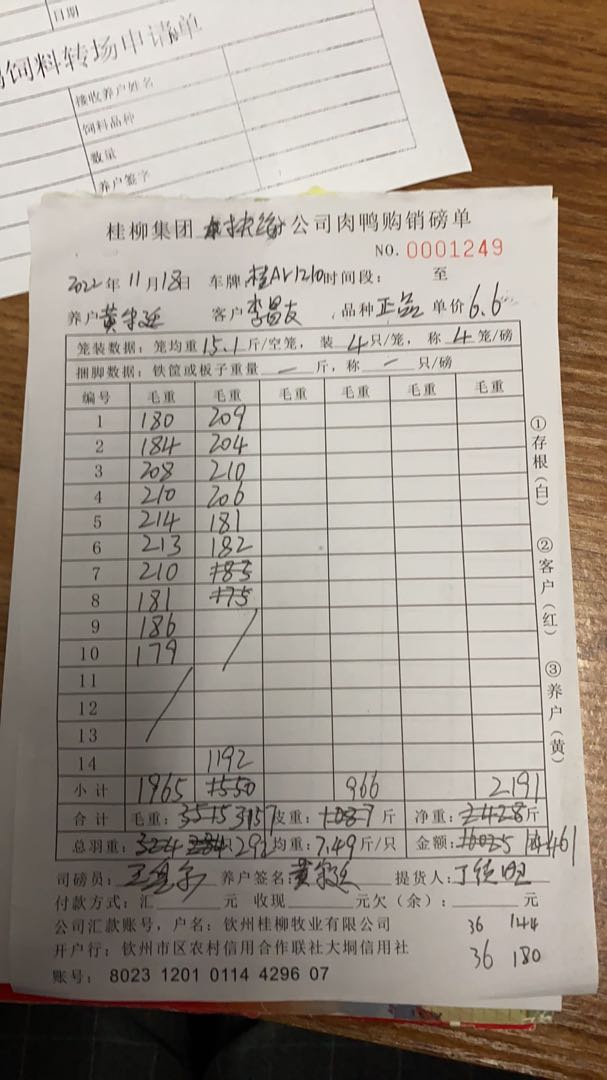 日期
饲料转场申请单
接收养户姓名
饲料品种
数量
养户签字
桂柳集团 公司肉鸭购销磅单
NO. 0001249
2022年11月18日 车牌 桂AV1210 时间段: 至
养户 黄 客户 李昌友 品种 正品 单价 6.6
笼装数据: 笼均重 15.1 斤/空笼, 装 4 只/笼, 称 4 笼/磅
捆脚数据: 铁筐或板子重量 — 斤, 称 — 只/磅
编号 毛重 毛重 毛重 毛重 毛重 毛重
1 180 209
2 184 204
3 208 210
4 210 206
5 214 181
6 213 182
7 210 183
8 181 175
9 186
10 179
11
12
13
14 1192
小计 1965 1550 966 2191
合计 毛重: 3515 3157 皮重: 1087 斤 净重: 2428 斤
总羽重: 324 284 只 292 均重: 7.49 斤/只 金额: 16025 14461
司磅员: 养户签名: 黄 提货人: 丁
付款方式: 汇 元 收现 元欠(余): 元
公司汇款账号, 户名: 钦州桂柳牧业有限公司 36 144
开户行: 钦州市区农村信用合作联社大垌信用社 36 180
账号: 8023 1201 0114 4296 07
①存根(白)
②客户(红)
③养户(黄)